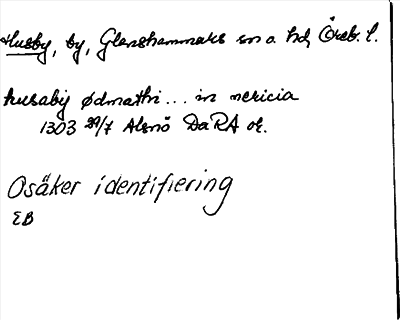 Husby, by, Glanshammars sn o. hd, Öreb. l.
husabij ødmathri... in nericia
1303 29/7 Alsnö DaRA or.
Osäker identifiering
EB